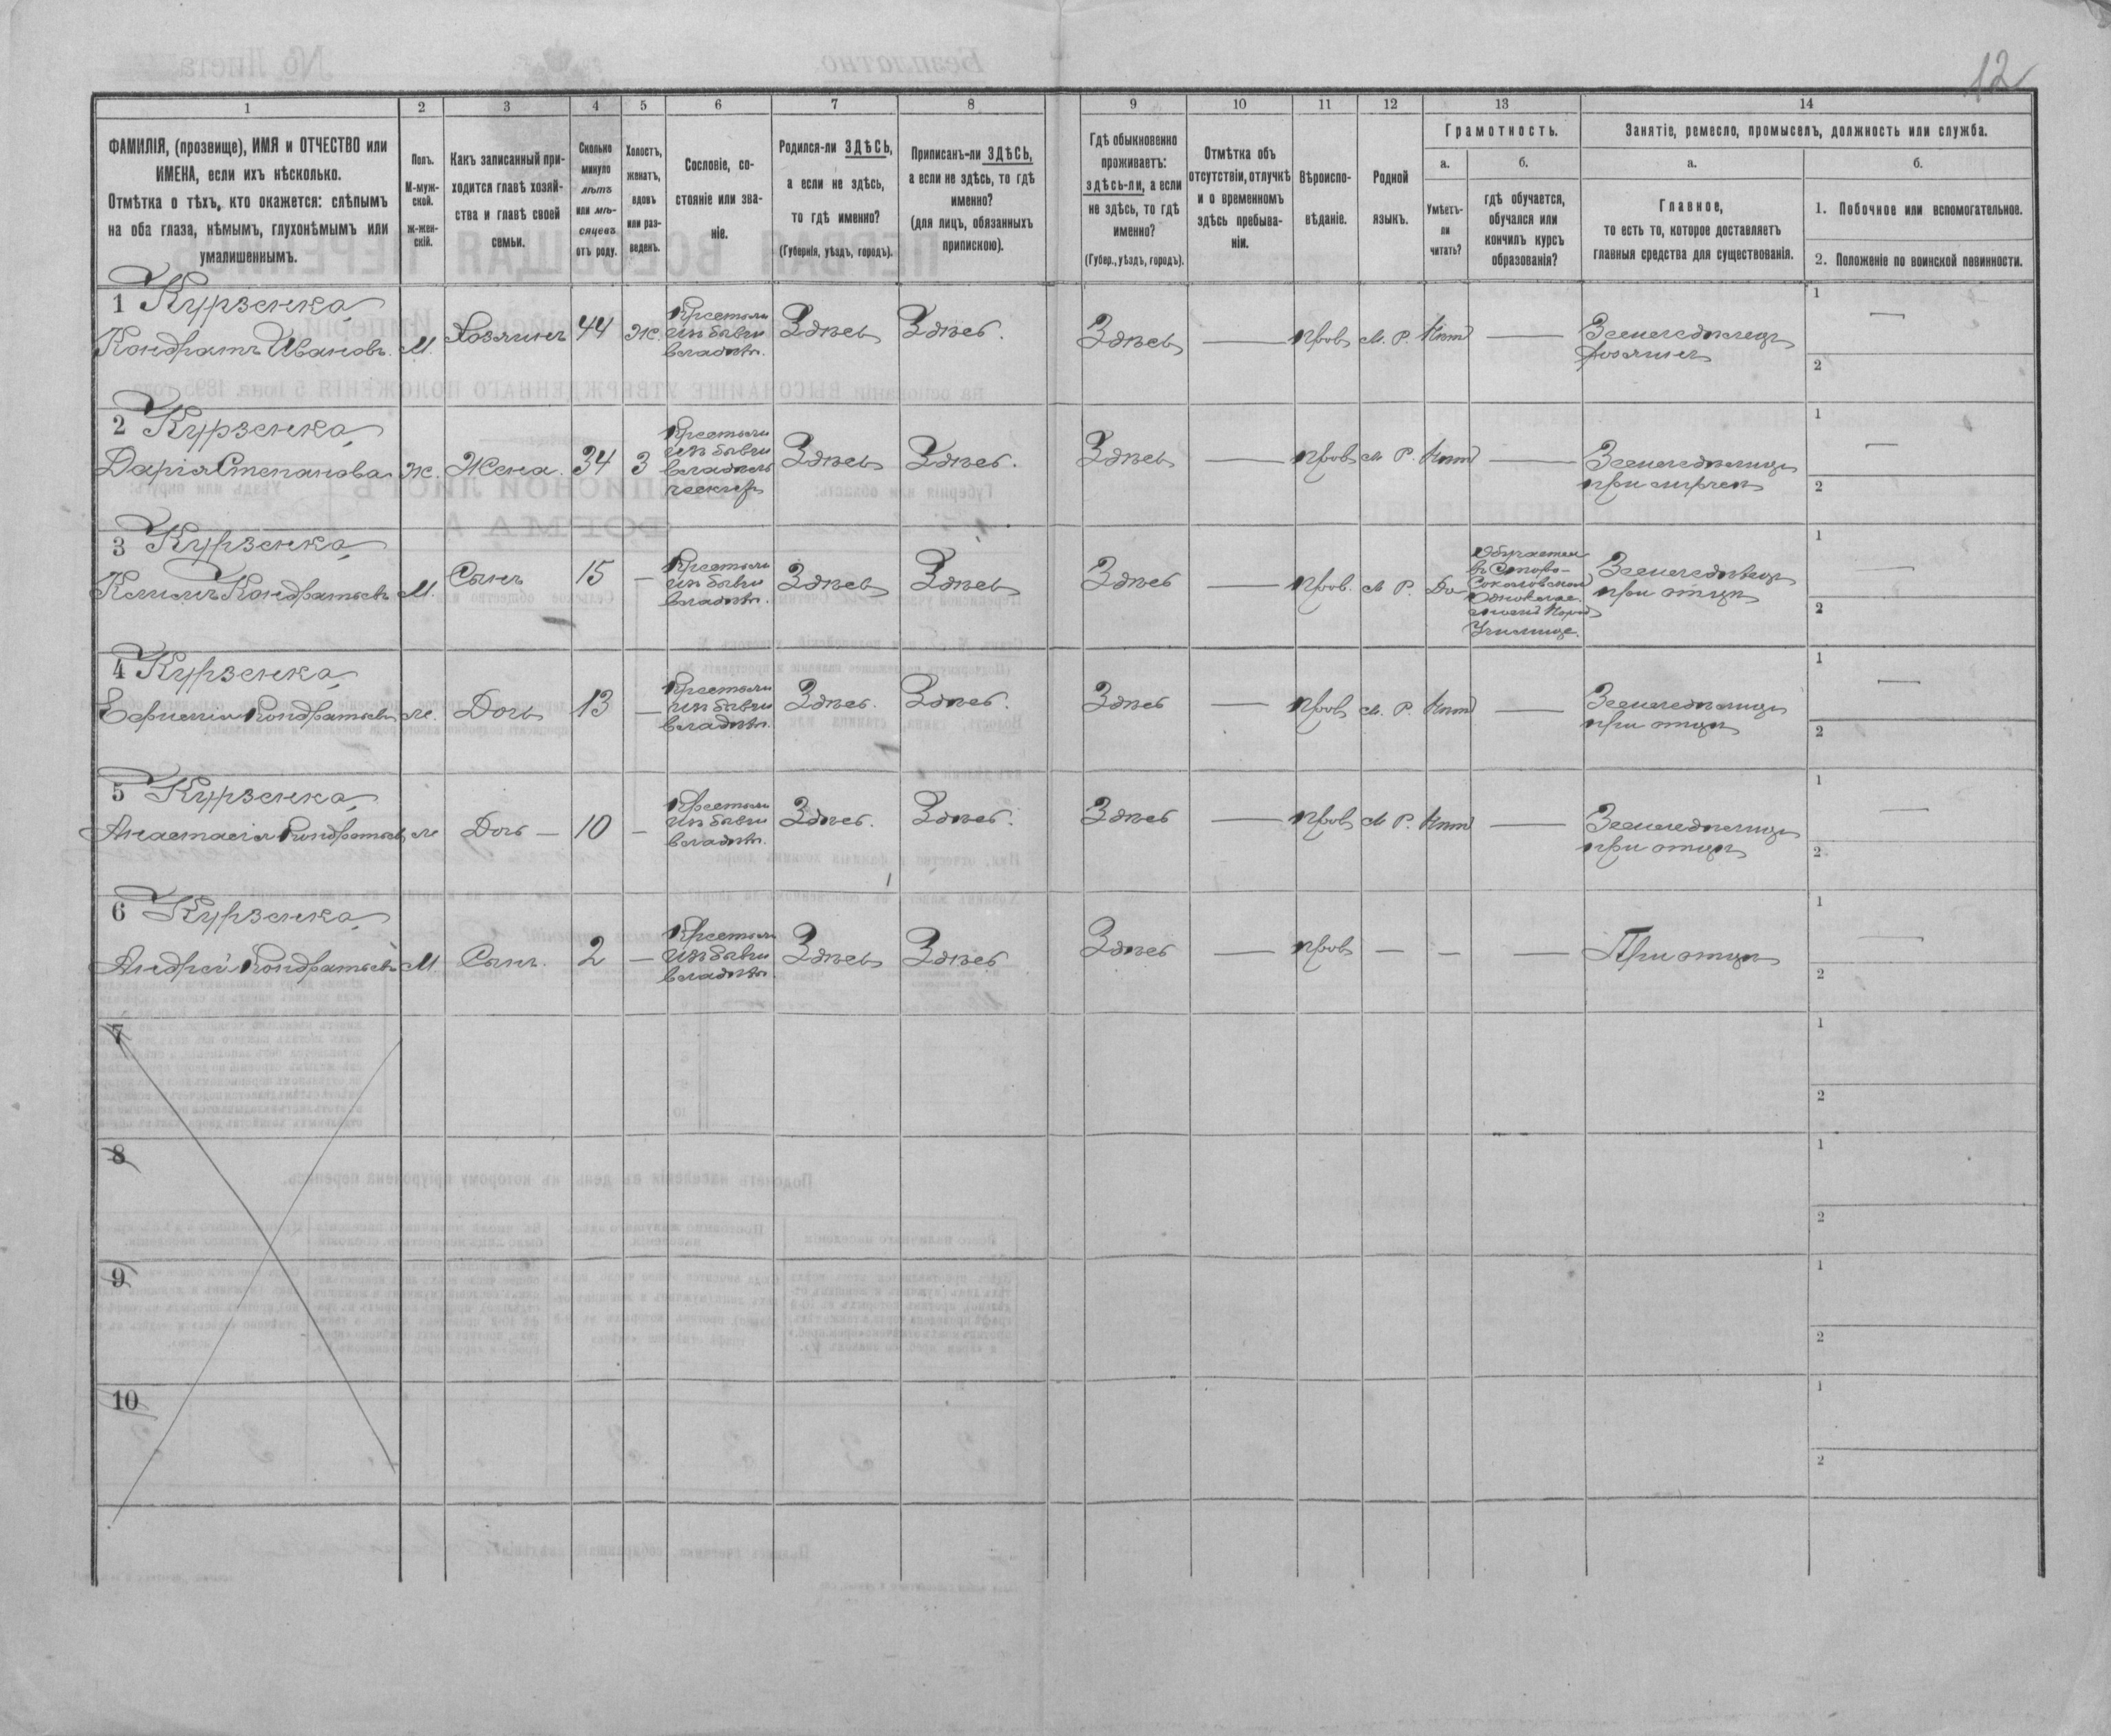 12
1 2 3 4 5 6 7 8 9 10 11 12 13 14
ФАМИЛІЯ, (прозвище), ИМЯ и ОТЧЕСТВО или
ИМЕНА, если ихъ нѣсколько.
Отмѣтка о тѣхъ, кто окажется: слѣпымъ
на оба глаза, нѣмымъ, глухонѣмымъ или
умалишеннымъ.
Полъ.
М-муж-
ской.
Ж-жен-
скій.
Какъ записанный при-
ходится главѣ хозяй-
ства и главѣ своей
семьи.
Сколько
минуло
лѣтъ
или мѣ-
сяцевъ
отъ роду.
Холостъ,
женатъ,
вдовъ
или раз-
веденъ.
Сословіе, со-
стояніе или зва-
ніе.
Родился-ли ЗДѢСЬ,
а если не здѣсь,
то гдѣ именно?
(Губернія, уѣздъ, городъ).
Приписанъ-ли ЗДѢСЬ,
а если не здѣсь, то гдѣ
именно?
(для лицъ, обязанныхъ
припискою).
Гдѣ обыкновенно
проживаетъ:
здѣсь-ли, а если
не здѣсь, то гдѣ
именно?
(Губер., уѣздъ, городъ).
Отмѣтка объ
отсутствіи, отлучкѣ
и о временномъ
здѣсь пребыва-
ніи.
Вѣроиспо-
вѣданіе.
Родной
языкъ.
Грамотность.
а.
Умѣетъ-
ли
читать?
б.
гдѣ обучается,
обучался или
кончилъ курсъ
образованія?
Занятіе, ремесло, промыселъ, должность или служба.
а.
Главное,
то есть то, которое доставляетъ
главныя средства для существованія.
б.
1. Побочное или вспомогательное.
2. Положеніе по воинской повинности.
1 Курзенка
Кондратъ Ивановъ. М. Хозяинъ 44 Ж. Крестьян
изъ бывш
владѣл. Здѣсь Здѣсь. Здѣсь — прав М. Р. Нѣт — Земледѣлец
хозяинъ 1 — 2
2 Курзенка
Дарія Степанова Ж. Жена. 34 З Крестьян
изъ бывш
владѣль
ческих Здѣсь Здѣсь. Здѣсь — прав М. Р. Нѣт — Земледѣлица
при мужѣ 1 — 2
3 Курзенка
Климъ Кондратьевъ М. Сынъ 15 — Крестьян
изъ бывш
владѣл. Здѣсь Здѣсь Здѣсь — прав. М. Р. Да Обучается
въ Старо-
Соколовском
Однокласс
Народ
Училище. Земледѣлец
при отцѣ 1 — 2
4 Курзенка
Ефимия Кондратьев ж. Дочь 13 — Крестьян
изъ бывш
владѣл. Здѣсь. Здѣсь. Здѣсь — прав М. Р. Нѣт — Земледѣлица
при отцѣ 1 — 2
5 Курзенка
Анастасія Кондратьев ж Дочь — 10 — Крестьян
изъ бывш
владѣл. Здѣсь. Здѣсь. Здѣсь — прав М Р. Нѣт — Земледѣлица
при отцѣ 1 — 2
6 Курзенка
Андрей Кондратьевъ М. Сынъ. 2 — Крестьян
изъ бывш
владѣл. Здѣсь Здѣсь Здѣсь — прав — — — При отцѣ 1 — 2
7 1 2
8 1 2
9 1 2
10 1 2